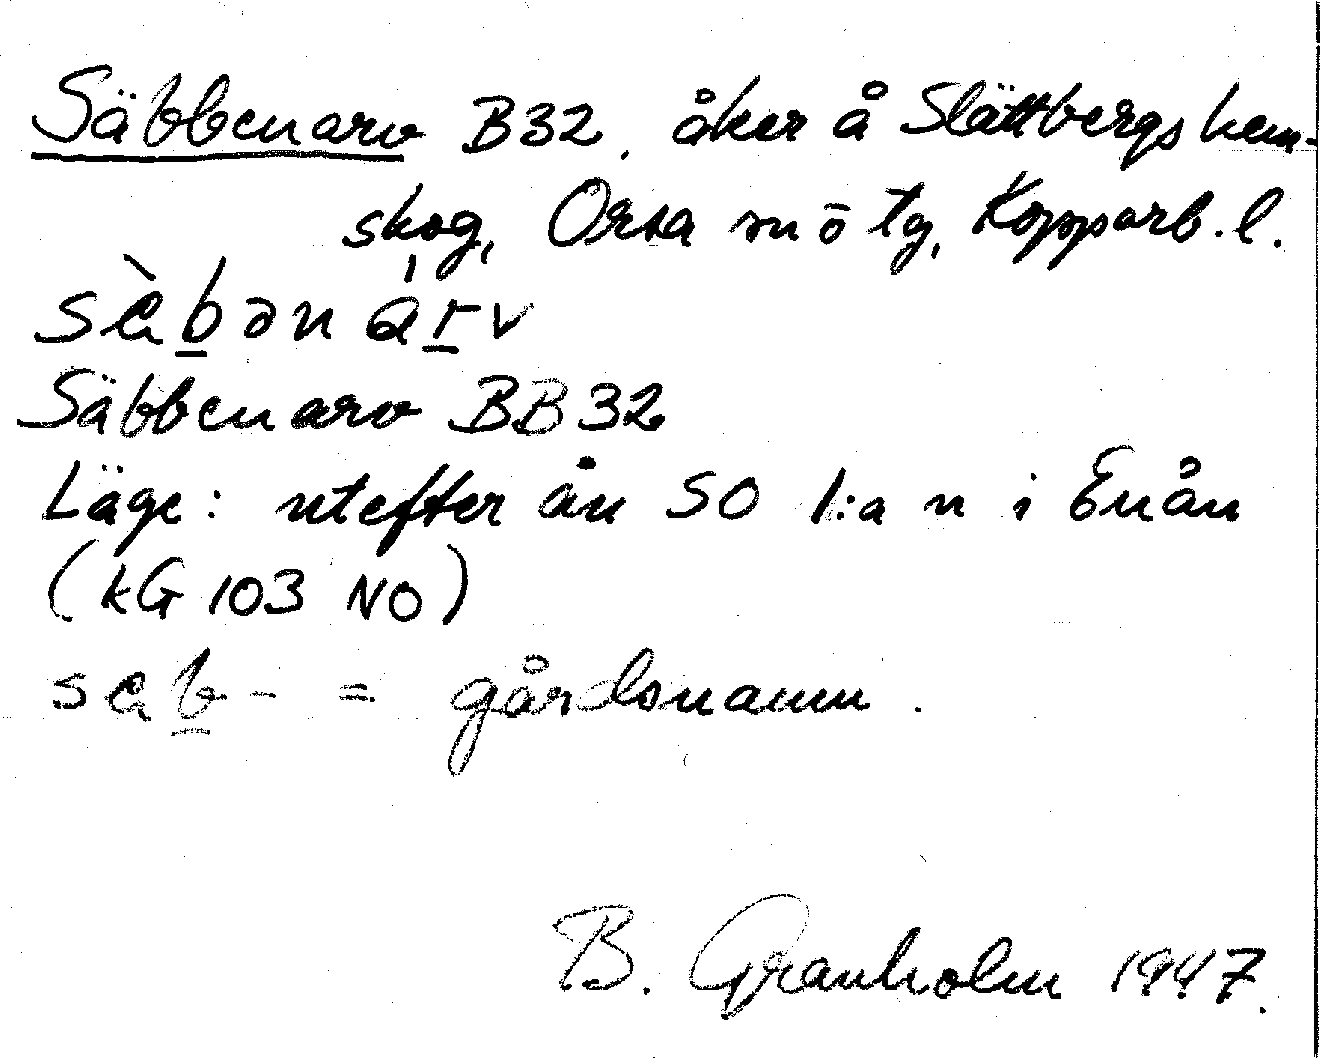 Säbbenarv B32. åker å Slättbergs hem-
skog, Orsa sn ö tg, Kopparb. l.
sὲb̲ən ár̲v
Säbbenarv BB32
Läge: utefter ån SO l:a n i Enån
(kG 103 NO)
sɛb̲- = gårdsnamn.
B. Granholm 1947.